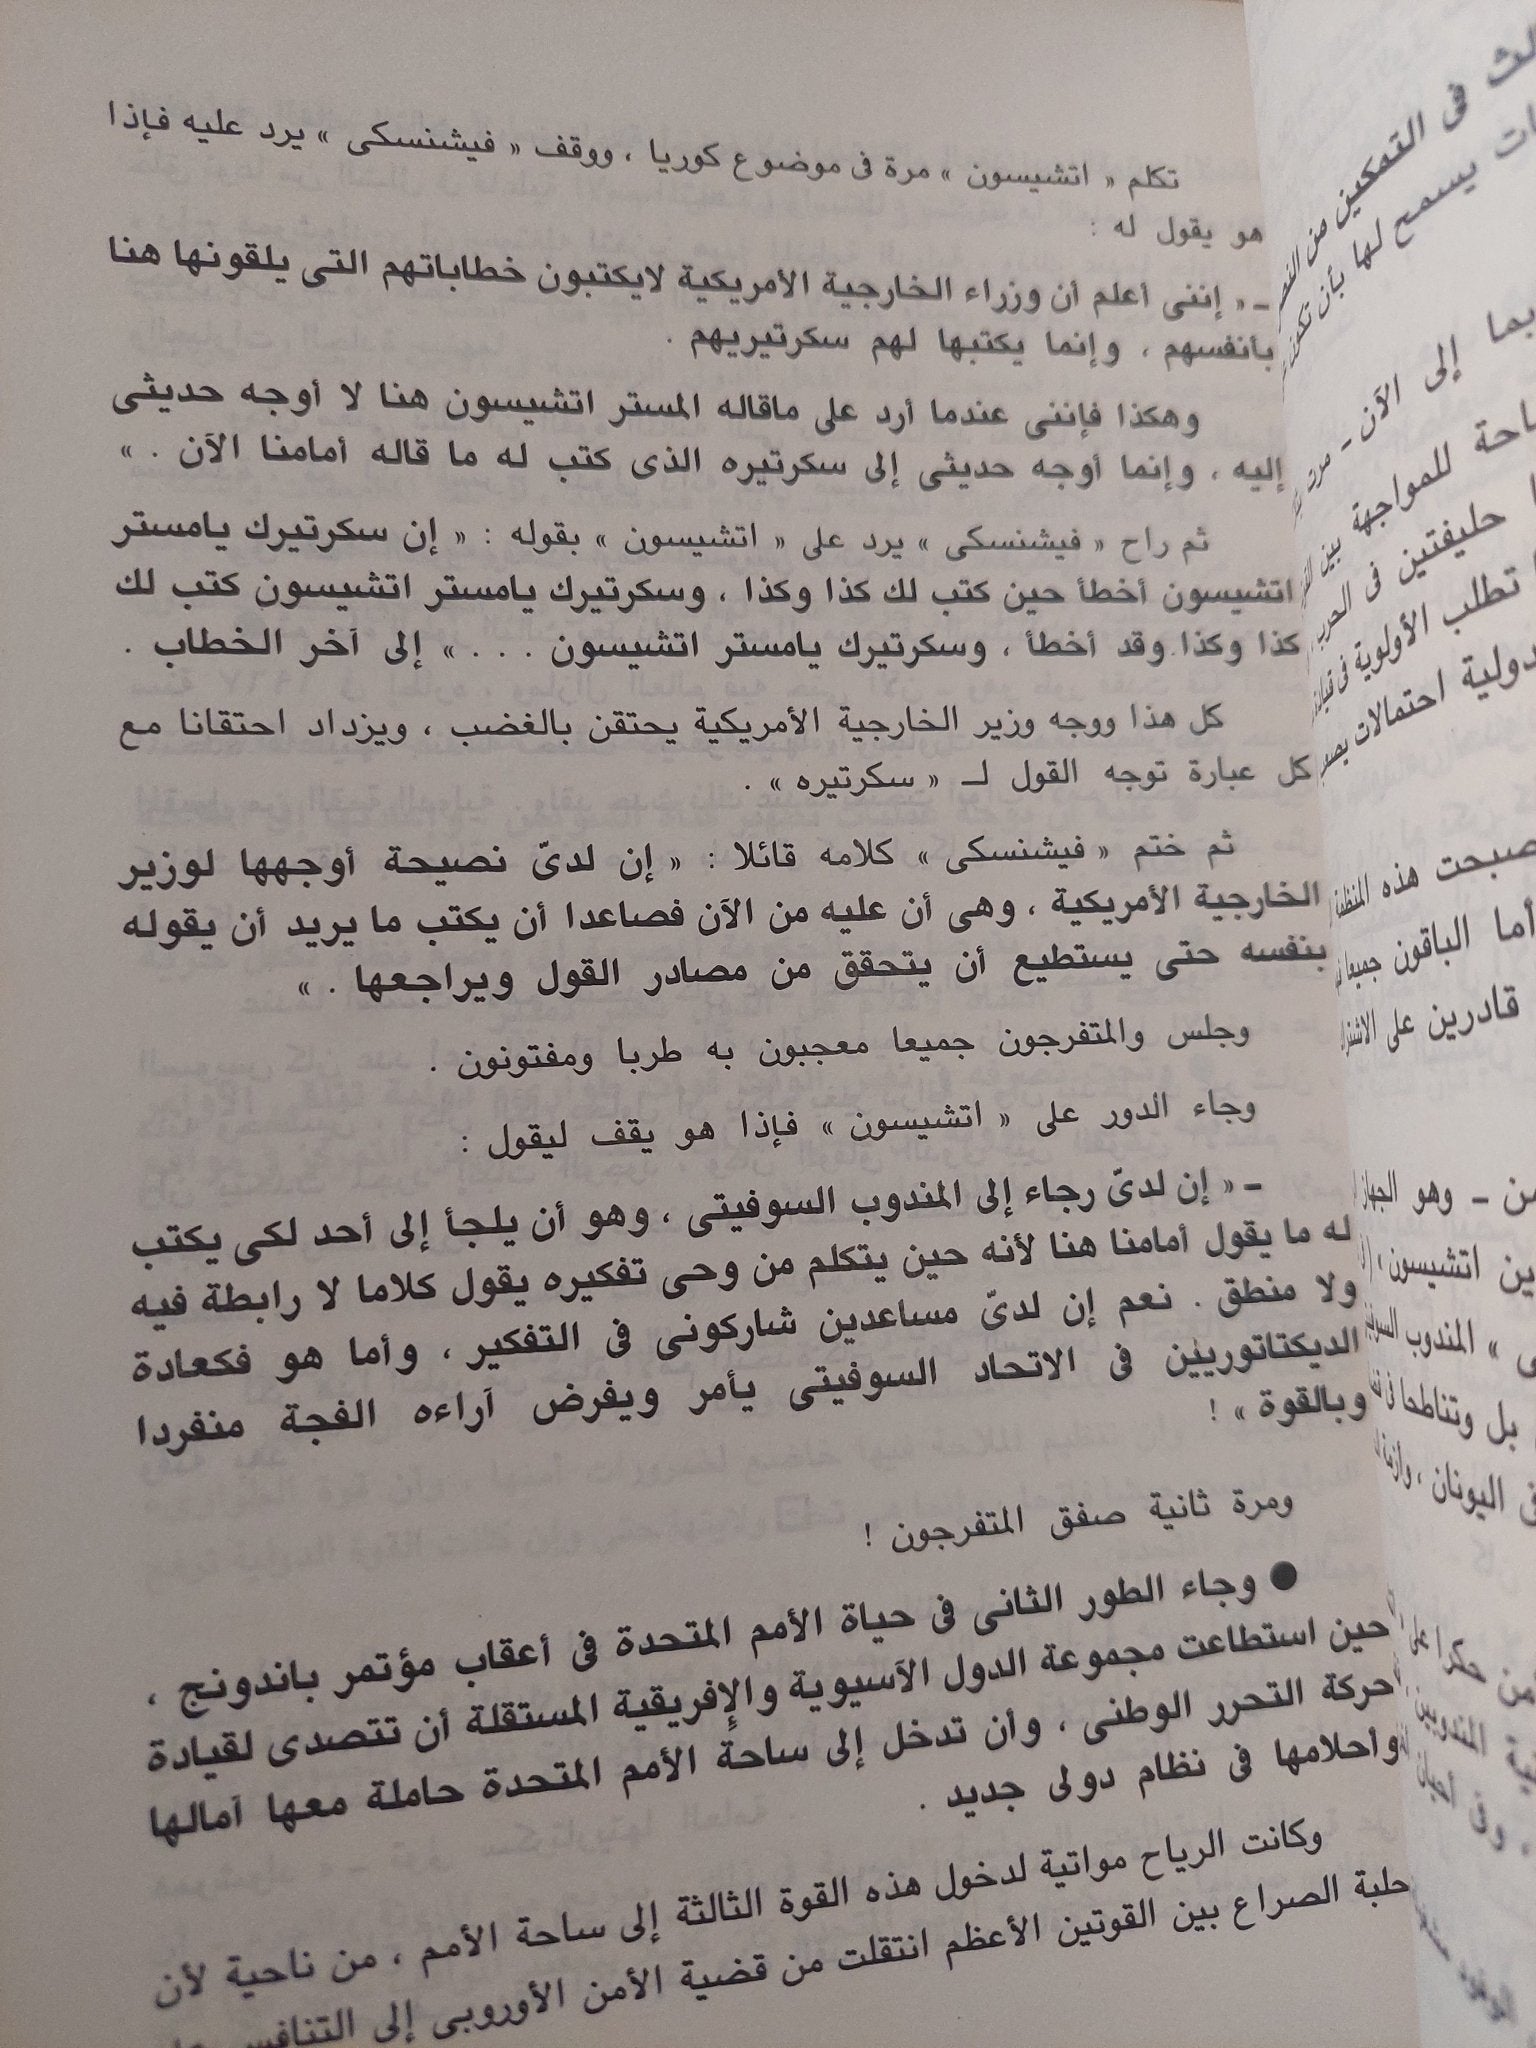 تكلم « اتشيسون » مرة فى موضوع كوريا ، ووقف « فيشنسكى » يرد عليه فإذا
هو يقول له :
ـ « إننى أعلم أن وزراء الخارجية الأمريكية لايكتبون خطاباتهم التى يلقونها هنا
بأنفسهم ، وإنما يكتبها لهم سكرتيريهم .
وهكذا فإننى عندما أرد على ماقاله المستر اتشيسون هنا لا أوجه حديثى
إليه ، وإنما أوجه حديثى إلى سكرتيره الذى كتب له ما قاله أمامنا الآن . »
ثم راح « فيشنسكى » يرد على « اتشيسون » بقوله : « إن سكرتيرك يامستر
اتشيسون أخطأ حين كتب لك كذا وكذا ، وسكرتيرك يامستر اتشيسون كتب لك
كذا وكذا وقد أخطأ ، وسكرتيرك يامستر اتشيسون . . . » إلى آخر الخطاب .
كل هذا ووجه وزير الخارجية الأمريكية يحتقن بالغضب ، ويزداد احتقانا مع
كل عبارة توجه القول لـ « سكرتيره » .
ثم ختم « فيشنسكى » كلامه قائلا : « إن لدىّ نصيحة أوجهها لوزير
الخارجية الأمريكية ، وهى أن عليه من الآن فصاعدا أن يكتب ما يريد أن يقوله
بنفسه حتى يستطيع أن يتحقق من مصادر القول ويراجعها . »
وجلس والمتفرجون جميعا معجبون به طربا ومفتونون .
وجاء الدور على « اتشيسون » فإذا هو يقف ليقول :
ـ « إن لدىّ رجاء إلى المندوب السوفيتى ، وهو أن يلجأ إلى أحد لكى يكتب
له ما يقول أمامنا هنا لأنه حين يتكلم من وحى تفكيره يقول كلاما لا رابطة فيه
ولا منطق . نعم إن لدىّ مساعدين شاركونى فى التفكير ، وأما هو فكعادة
الديكتاتوريين فى الاتحاد السوفيتى يأمر ويفرض آراءه الفجة منفردا
وبالقوة » !
ومرة ثانية صفق المتفرجون !
● وجاء الطور الثانى فى حياة الأمم المتحدة فى أعقاب مؤتمر باندونج ،
حين استطاعت مجموعة الدول الآسيوية والإفريقية المستقلة أن تتصدى لقيادة
حركة التحرر الوطنى ، وأن تدخل إلى ساحة الأمم المتحدة حاملة معها آمالها
وأحلامها فى نظام دولى جديد .
وكانت الرياح مواتية لدخول هذه القوة الثالثة إلى ساحة الأمم ، من ناحية لأن
حلبة الصراع بين القوتين الأعظم انتقلت من قضية الأمن الأوروبى إلى التنافس
فى التمكين من
يسمح لها بأن
إلى الآن ـ مرت
للمواجهة بين
حليفتين فى الحرب
تطلب الأولوية فى
احتمالات
هذه المنظمة
أما الباقون جميعا
قادرين على
ـ وهو الجهاز
اتشيسون ،
» المندوب
بل وتناطحا فى
اليونان ، وأزمة
حكرا على
المندوبين
وفى أحيان